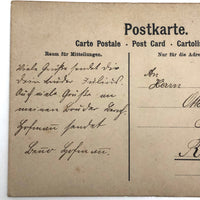 Postkarte.
Carte Postale · Post Card · Cartoli
Raum für Mitteilungen.
Nur für die Adre
Viele Grüße sendet dir
dein Bruder
Auch viele Grüße an
meinen Bruder
Hofmann sendet
Hofmann
An
Herrn